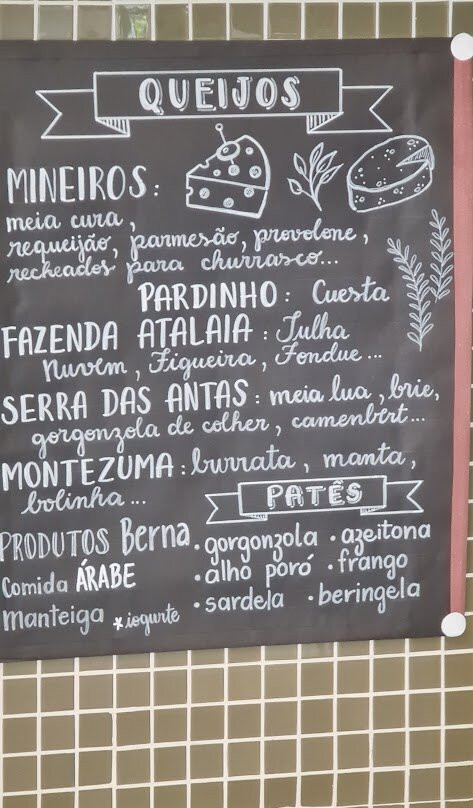 QUEIJOS
MINEIROS:
meia cura,
requeijão, parmesão, provolone,
recheados para churrasco...
PARDINHO: Cuesta
FAZENDA ATALAIA: Tulha
Nuvem, Figueira, Fondue...
SERRA DAS ANTAS: meia lua, brie,
gorgonzola de colher, camenbert...
MONTEZUMA: burrata, manta,
bolinha...
PATÊS
PRODUTOS Berna
Comida ÁRABE
Manteiga *iogurte
• gorgonzola • azeitona
• alho poró • frango
• sardela • beringela